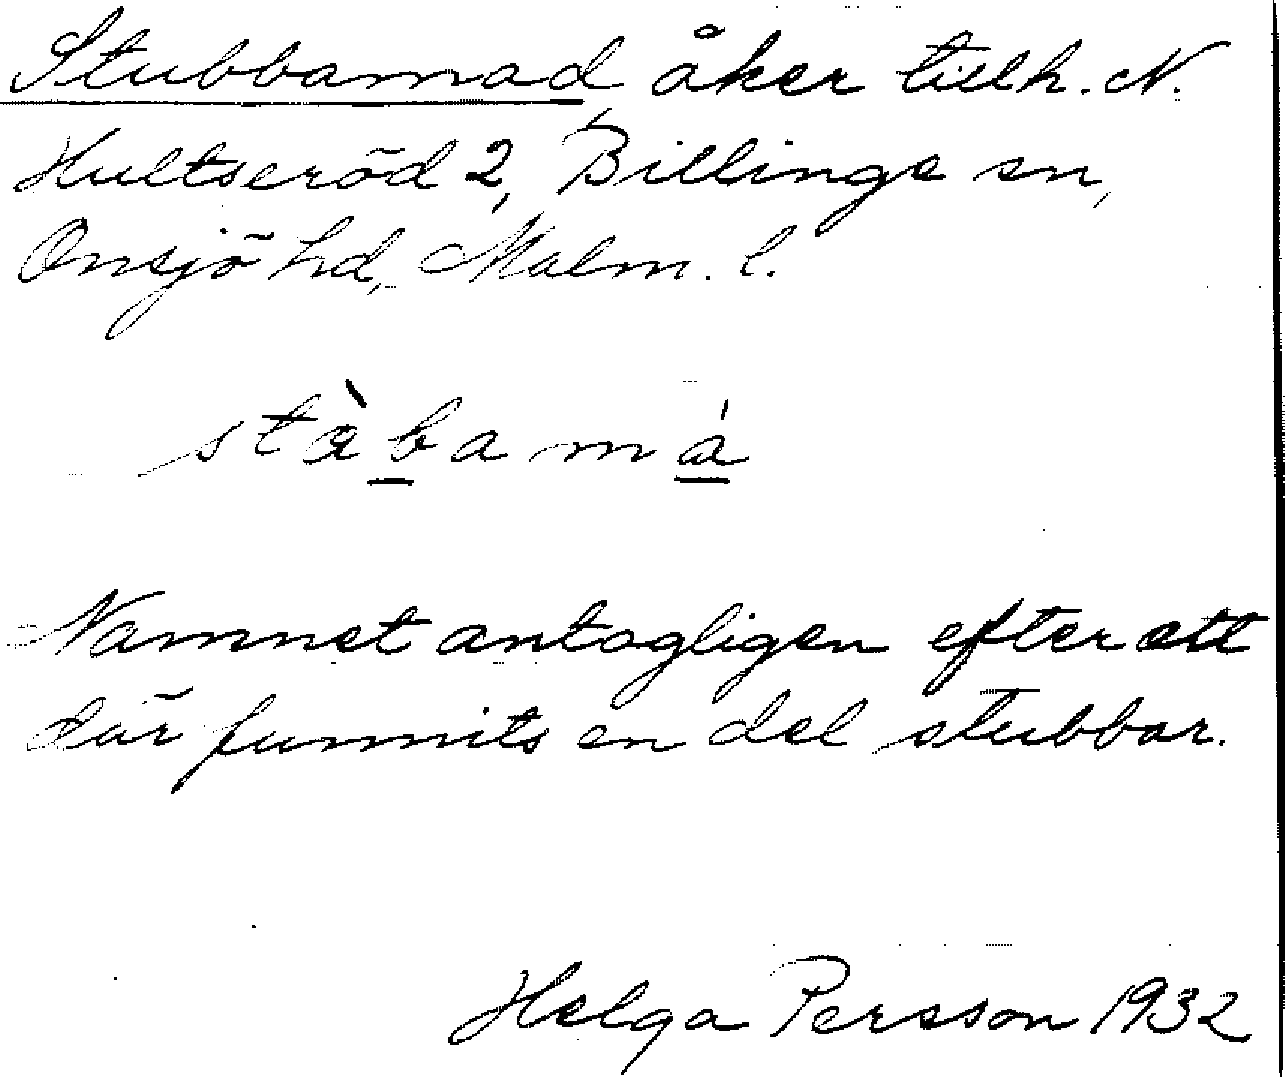 Stubbamad, åker tillh. N.
Hultseröd 2, Billinge sn,
Onsjö hd, Malm. l.
stàbamá
Namnet antagligen efter att
där funnits en del stubbar.
Helga Persson 1932